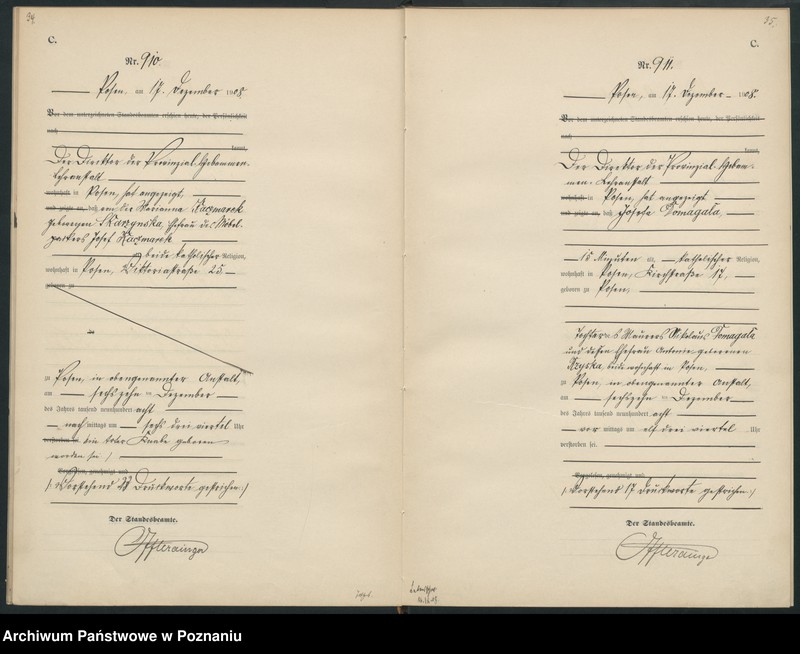 34.
C.
Nr. 910.
Posen, am 17. Dezember 1908.
Vor dem unterzeichneten Standesbeamten erschien heute, der Persönlichkeit
nach
kannt,
Der Direktor der Provinzial-Hebammen-
Lehranstalt
wohnhaft in Posen, hat angezeigt,
und zeigte an, daß von der Marianna Kaczmarek
geborenen Skarzynska, Ehefrau des Möbel-
packers Josef Kaczmarek
beide katholischer Religion,
wohnhaft in Posen, Viktoriastraße 25
geboren zu
zu Posen, in obengenannter Anstalt,
am sechszehn ten Dezember
des Jahres tausend neunhundert acht
nach mittags um sechs drei viertel Uhr
verstorben sei ein toter Knabe geboren
worden sei
Vorgelesen, genehmigt und
(: Vorstehend 28 Druckworte gestrichen :)
Der Standesbeamte.
35.
C.
Nr. 911.
Posen, am 17. Dezember 1908.
Vor dem unterzeichneten Standesbeamten erschien heute, der Persönlichkeit
nach
kannt,
Der Direktor der Provinzial-Hebam-
men-Lehranstalt
wohnhaft in Posen, hat angezeigt
und zeigte an, daß Josefa Domagała,
15 Minuten alt, katholischer Religion,
wohnhaft in Posen, Kirchstraße 17,
geboren zu Posen,
Tochter des Maurers Nikolaus Domagała
und dessen Ehefrau Antonie geborenen
beide wohnhaft in Posen,
zu Posen, in obengenannter Anstalt,
am sechszehn ten Dezember
des Jahres tausend neunhundert acht
vor mittags um elf drei viertel Uhr
verstorben sei.
Vorgelesen, genehmigt und
(: Vorstehend 17 Druckworte gestrichen :)
Der Standesbeamte.
Archiwum Państwowe w Poznaniu